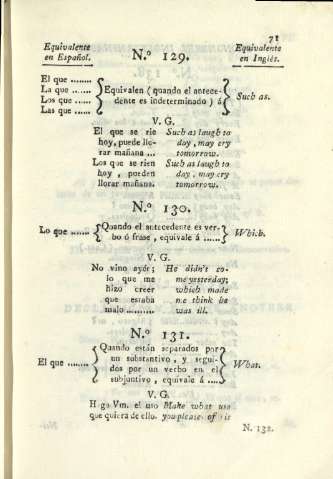 71
Equivalente en Español. N.º 129. Equivalente en Inglés.
El que ........
La que .......
Los que ......
Las que ......
Equivalen (quando el antece-
dente es indeterminado) á
Such as.
V. G.
El que se rie Such as laugh to
hoy, puede llo- day, may cry
rar mañana ... tomorrow.
Los que se rien Such as laugh to
hoy, pueden day, may cry
llorar mañana. tomorrow.
N.º 130.
Lo que .......
Quando el antecedente es ver-
bo ó frase, equivale á ......
Which.
V. G.
No vino ayer; He didn't co-
lo que me me yesterday;
hizo creer which made
que estaba me think he
malo .......... was ill.
N.º 131.
El que .......
Quando están separados por
un substantivo, y segui-
dos por un verbo en el
subjuntivo, equivale á ....
What.
V. G.
H ga Vm. el uso Make what use
que quiera de ello. you please of it
N. 132.